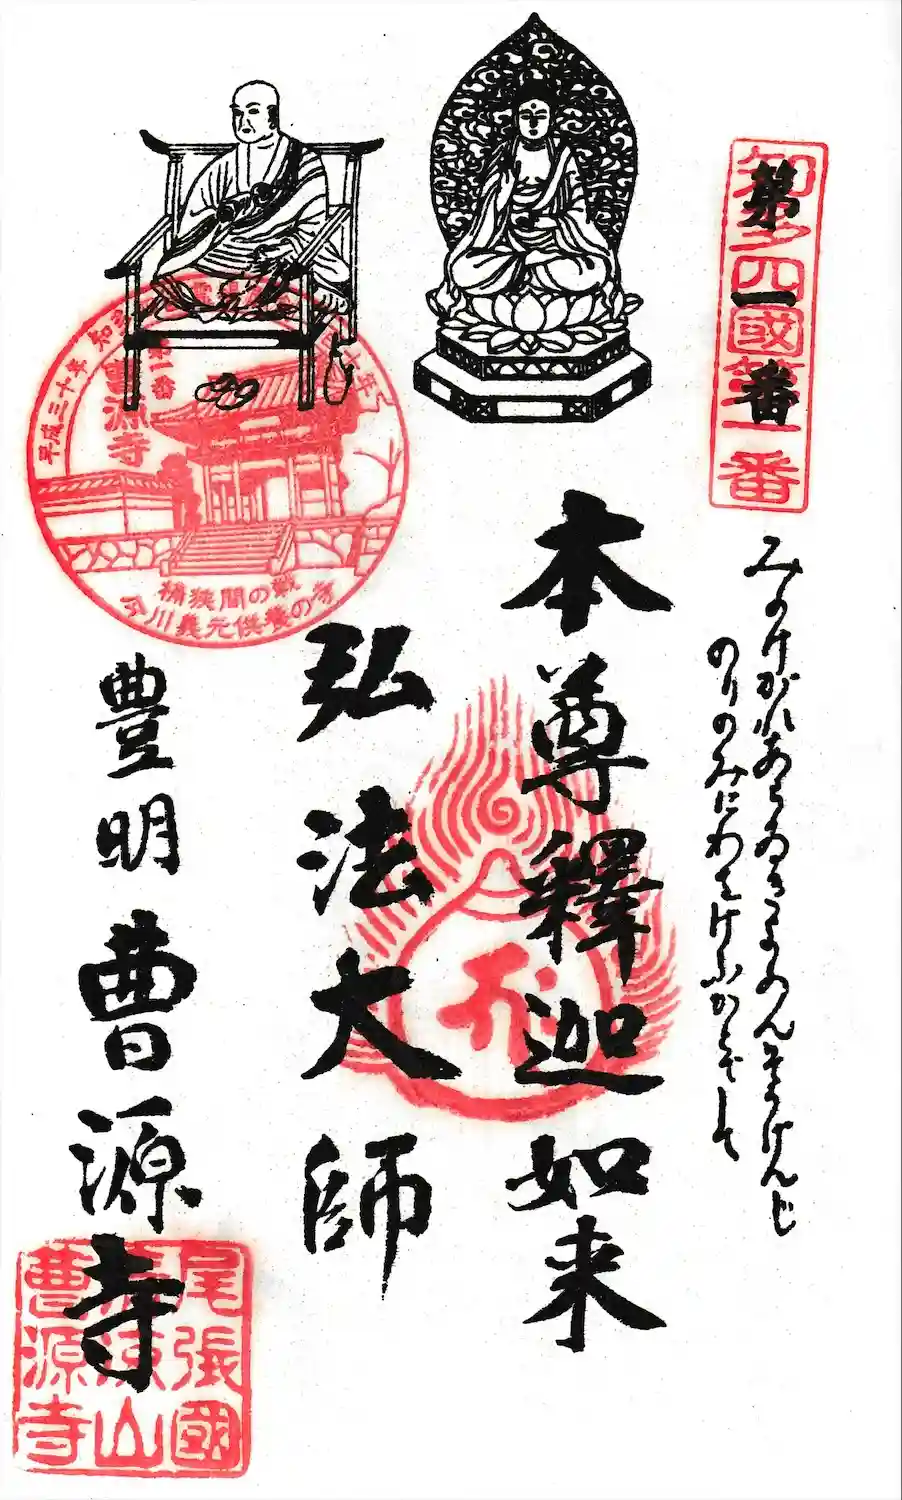 第一番
知多四國第一番
みのけがれあらゐきよめんそうげんじ
のりのみにわをけふかどでして
本尊釋迦如来
弘法大師
平成三十年 知多
一番
曹源寺
桶狭間の戦
今川義元供養の
豊明曹源寺
尾張國
清涼山
曹源寺